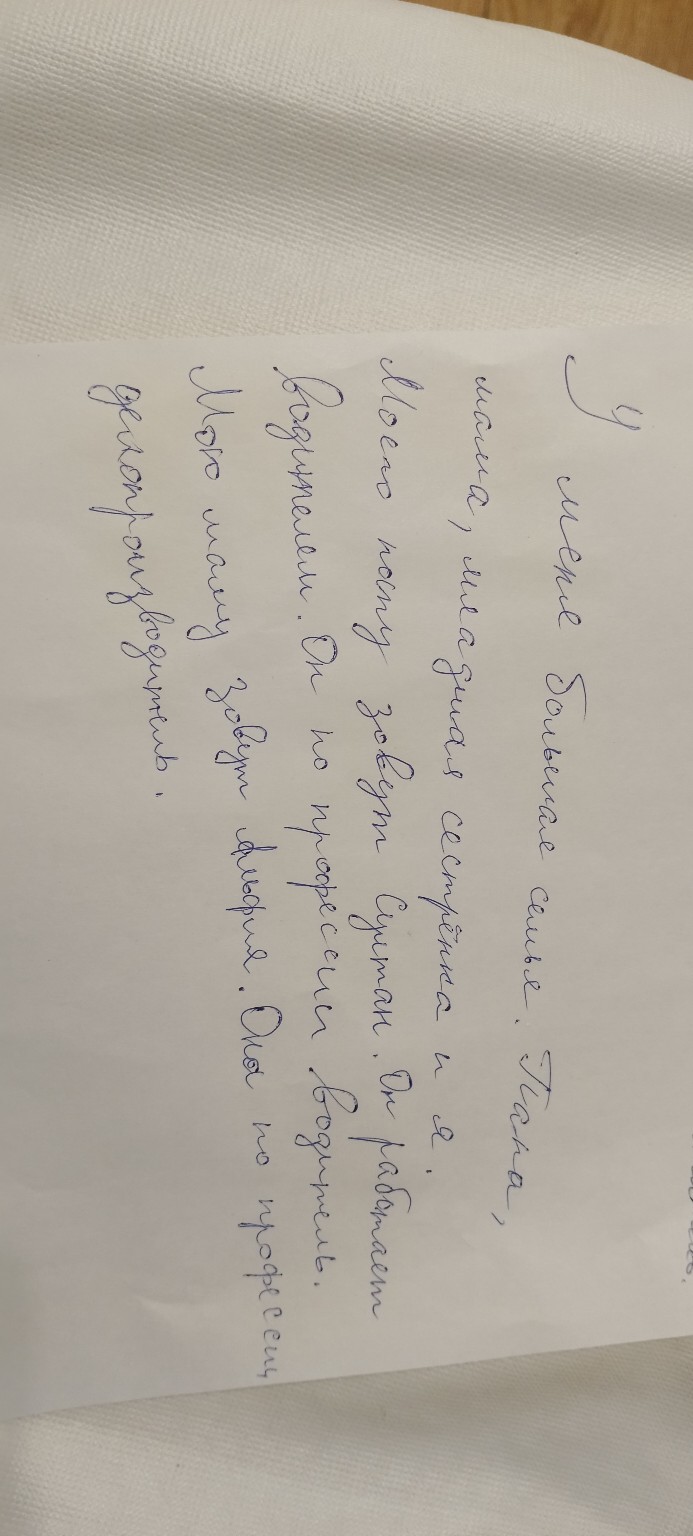 У меня большая семья. Папа,
мама, младшая сестрёнка и я.
Моего папу зовут Султан. Он работает
водителем. Он по профессии водитель.
Мою маму зовут Альфия. Она по профессии
делопроизводитель.